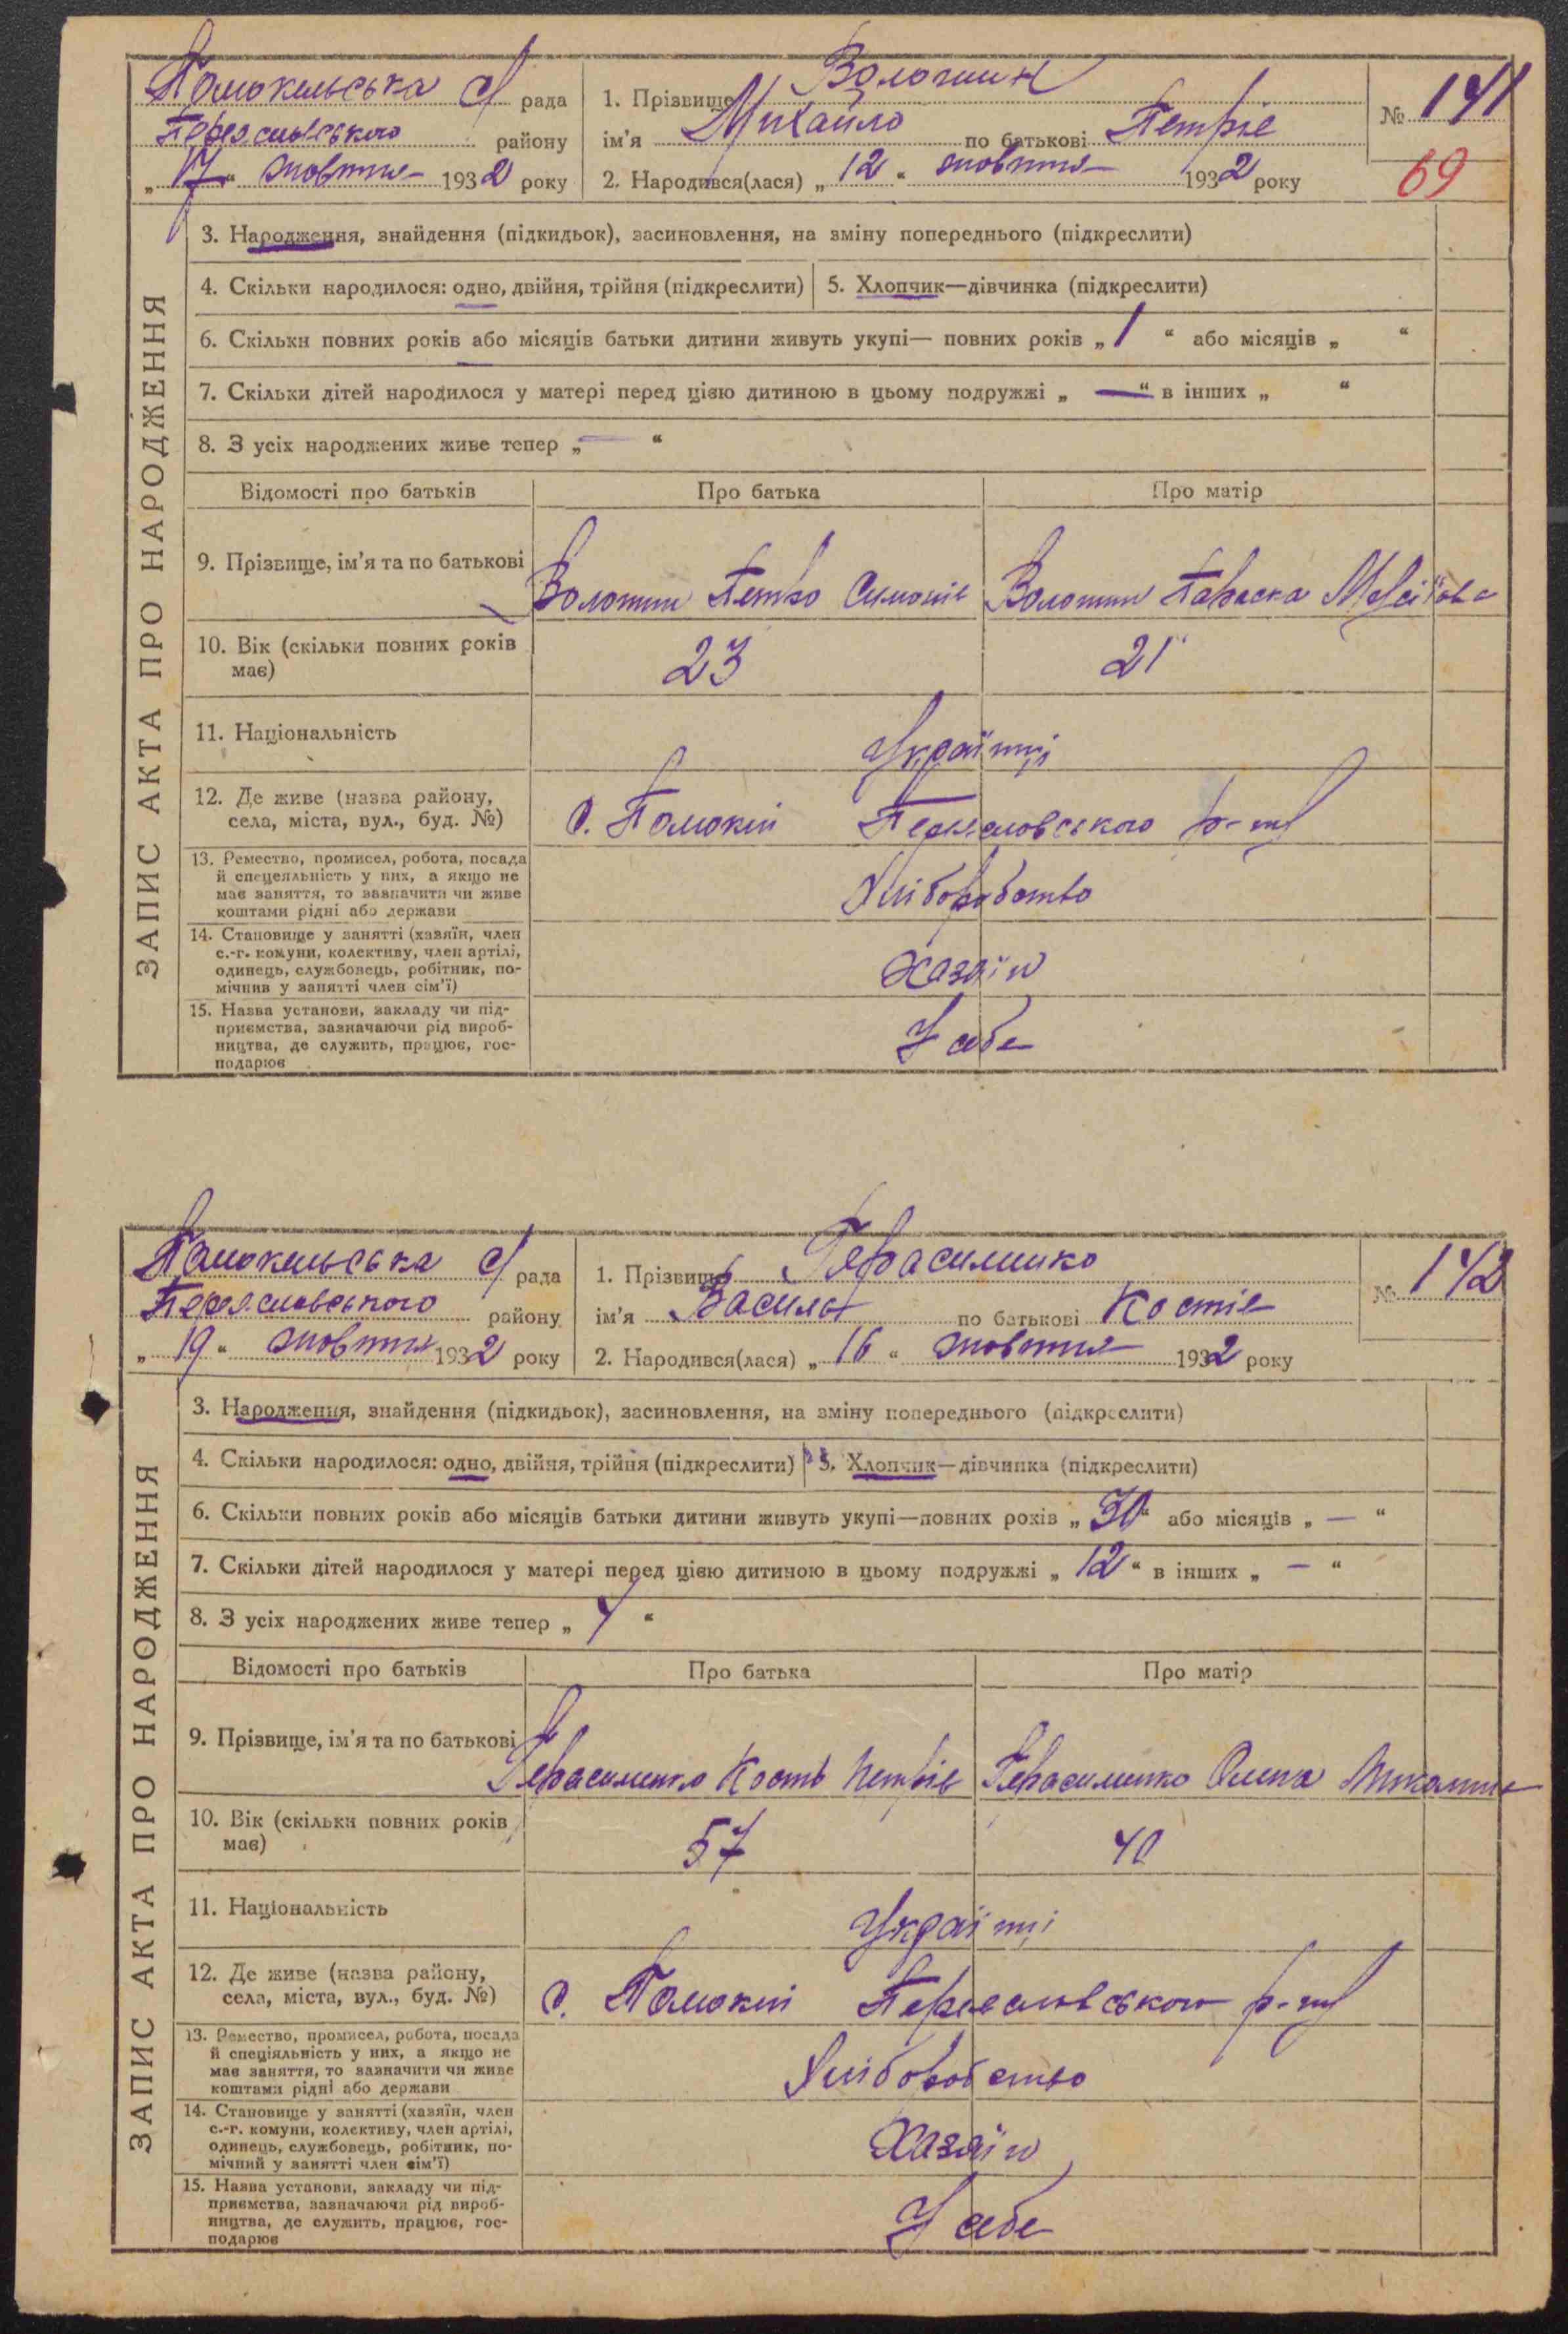 Помокельська с/рада
Переяславського району
„17“ жовтня 1932 року
1. Прізвище Волошин
ім'я Михайло по батькові Петрів
2. Народився(лася) „12“ жовтня 1932 року
№ 141
69
ЗАПИС АКТА ПРО НАРОДЖЕННЯ
3. Народження, знайдення (підкидьок), засиновлення, на зміну попереднього (підкреслити)
4. Скільки народилося: одно, двійня, трійня (підкреслити)
5. Хлопчик—дівчинка (підкреслити)
6. Скільки повних років або місяців батьки дитини живуть укупі— повних років „1“ або місяців „ “
7. Скільки дітей народилося у матері перед цією дитиною в цьому подружжі „—“ в інших „ “
8. З усіх народжених живе тепер „—“
Відомості про батьків
Про батька
Про матір
9. Прізвище, ім'я та по батькові
Волошин Петро Симонів
Волошин Параска
10. Вік (скільки повних років
має)
23
21
11. Національність
Українці
12. Де живе (назва району,
села, міста, вул., буд. №)
с. Помоклі Переяславського р-ну
13. Ремество, промисел, робота, посада
й спецеяльність у них, а якщо не
має заняття, то зазначити чи живе
коштами рідні або держави
Хліборобство
14. Становище у занятті (хазяїн, член
с.-г. комуни, колективу, член артілі,
одинець, службовець, робітник, по-
мічнив у занятті член сім'ї)
Хазяїн
15. Назва установи, закладу чи під-
приємства, зазначаючи рід вироб-
ництва, де служить, працює, гос-
подарює
У себе
Помокельська с/рада
Переяславського району
„19“ жовтня 1932 року
1. Прізвище Герасименко
ім'я Василь по батькові Костів
2. Народився(лася) „16“ жовтня 1932 року
№ 142
ЗАПИС АКТА ПРО НАРОДЖЕННЯ
3. Народження, знайдення (підкидьок), засиновлення, на зміну попереднього (підкреслити)
4. Скільки народилося: одно, двійня, трійня (підкреслити)
5. Хлопчик—дівчинка (підкреслити)
6. Скільки повних років або місяців батьки дитини живуть укупі—повних років „30“ або місяців „—“
7. Скільки дітей народилося у матері перед цією дитиною в цьому подружжі „12“ в інших „—“
8. З усіх народжених живе тепер „ “
Відомості про батьків
Про батька
Про матір
9. Прізвище, ім'я та по батькові
Герасименко Кость Петрів
Герасименко Олена
10. Вік (скільки повних років
має)
57
40
11. Національність
Українці
12. Де живе (назва району,
села, міста, вул., буд. №)
с. Помоклі Переяславського р-ну
13. Ремество, промисел, робота, посада
й спеціяльність у них, а якщо не
має заняття, то зазначити чи живе
коштами рідні або держави
Хліборобство
14. Становище у занятті (хазяїн, член
с.-г. комуни, колективу, член артілі,
одинець, службовець, робітник, по-
мічний у занятті член сім'ї)
Хазяїн
15. Назва установи, закладу чи під-
приємства, зазначаючи рід вироб-
ництва, де служить, працює, гос-
подарює
У себе